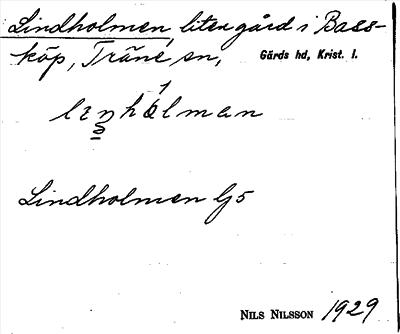 Lindholmen, liten gård i Bass-
köp, Träne sn, Gärds hd, Krist. l.
Lindholmen Gj5
NILS NILSSON 1929